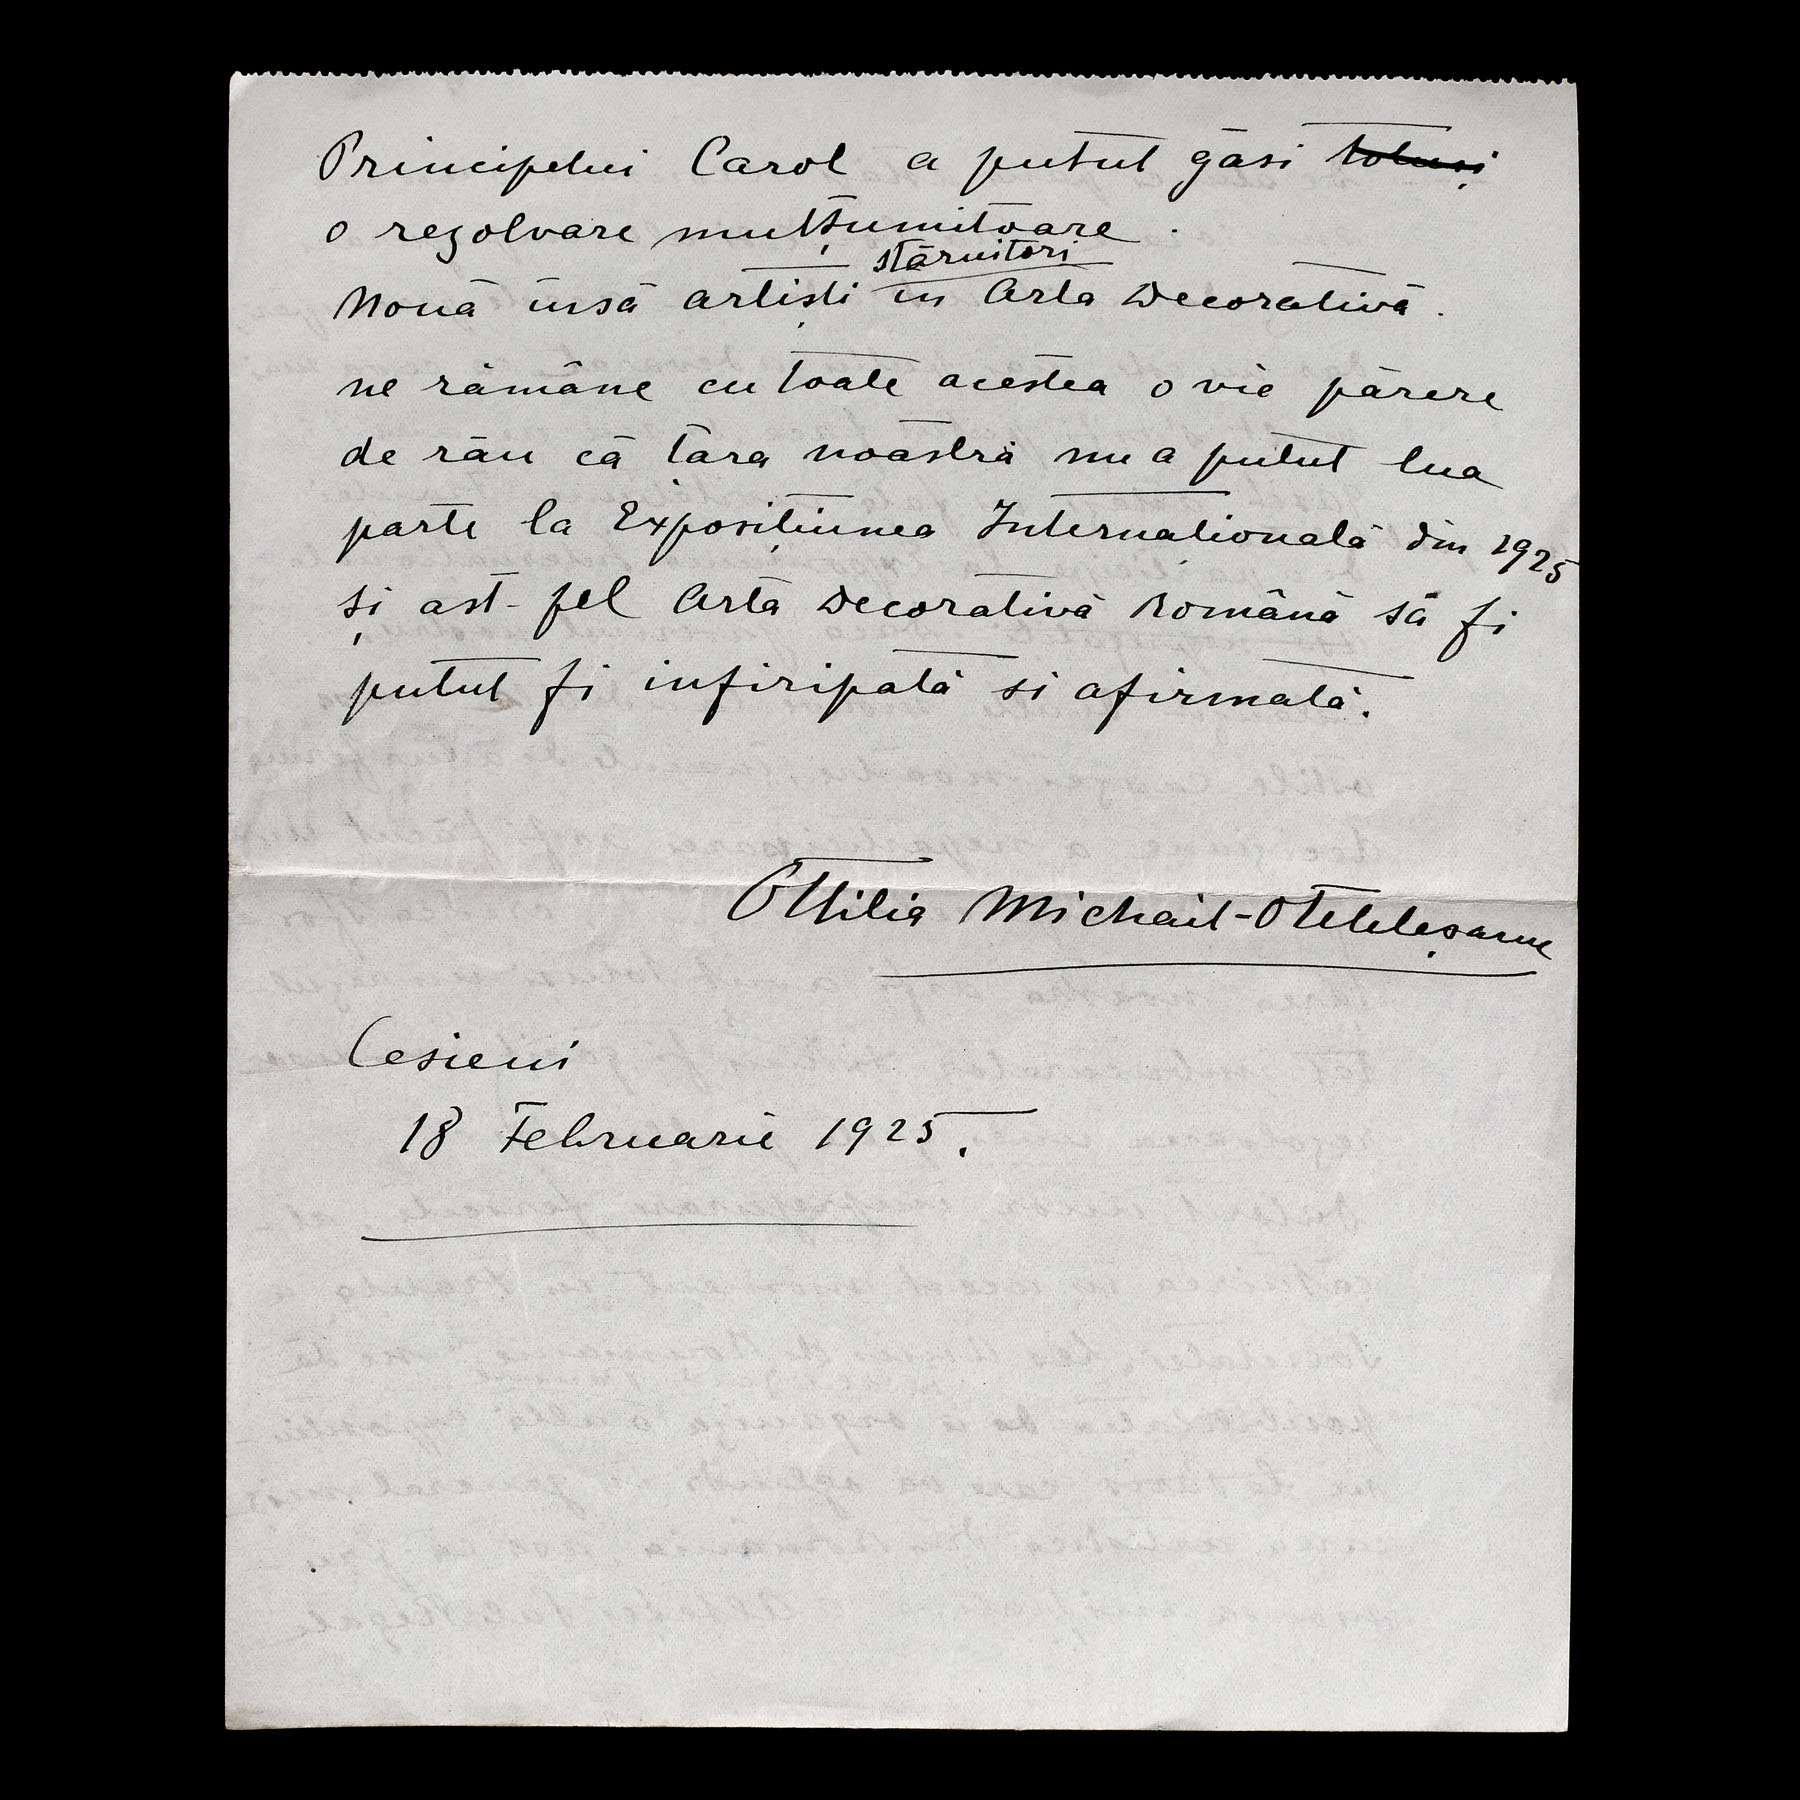 Principelui Carol a putut găsi totuși
o rezolvare mulțumitoare.
stăruitori
Nouă însă artiști în Arta Decorativă.
ne rămâne cu toate acestea o vie părere
de rău că țara noastră nu a putut lua
parte la Expozițiunea Internațională din 1925
și ast-fel Arta Decorativă Română să fi
putut fi infiripată si afirmată.
Ottilia Michail-Oteteleșanu
Cesieni
18 Februarie 1925.